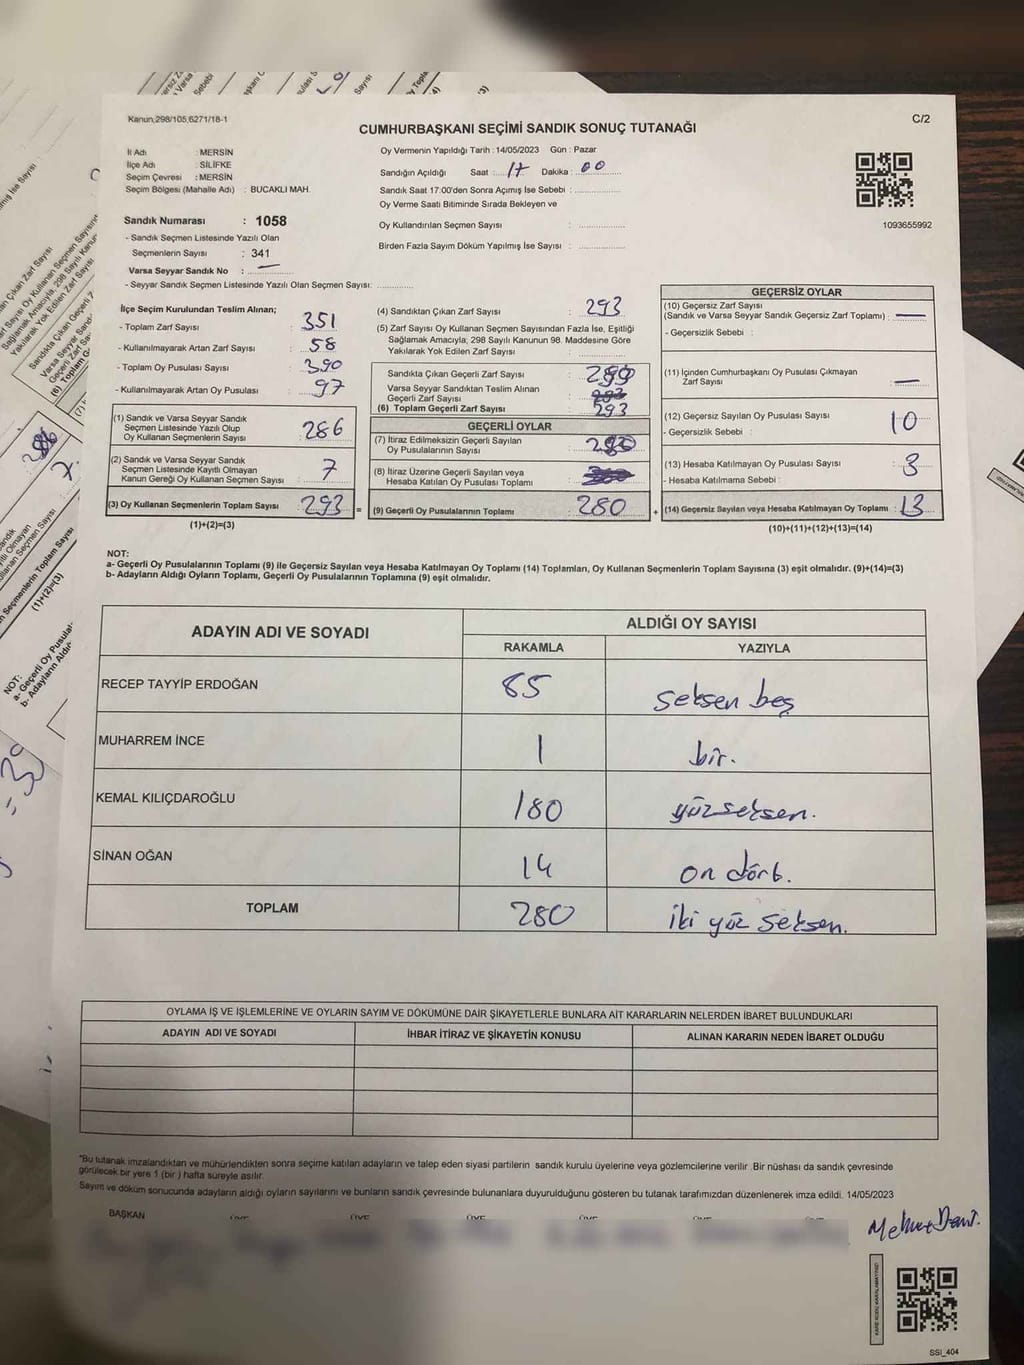 Kanun,298/105,6271/18-1
C/2
CUMHURBAŞKANI SEÇİMİ SANDIK SONUÇ TUTANAĞI
İl Adı : MERSİN
İlçe Adı : SİLİFKE
Seçim Çevresi : MERSİN
Seçim Bölgesi (Mahalle Adı) : BUCAKLI MAH.
Sandık Numarası : 1058
- Sandık Seçmen Listesinde Yazılı Olan
Seçmenlerin Sayısı : 341
Varsa Seyyar Sandık No : —
- Seyyar Sandık Seçmen Listesinde Yazılı Olan Seçmen Sayısı: ..............
Oy Vermenin Yapıldığı Tarih : 14/05/2023 Gün : Pazar
Sandığın Açıldığı Saat : 17 Dakika : 00
Sandık Saat 17.00'den Sonra Açımış İse Sebebi : ..............
Oy Verme Saati Bitiminde Sırada Bekleyen ve
Oy Kullandırılan Seçmen Sayısı : ..............
Birden Fazla Sayım Döküm Yapılmış İse Sayısı : ..............
1093655992
İlçe Seçim Kurulundan Teslim Alınan;
- Toplam Zarf Sayısı : 351
- Kullanılmayarak Artan Zarf Sayısı : 58
- Toplam Oy Pusulası Sayısı : 390
- Kullanılmayarak Artan Oy Pusulası : 97
(1) Sandık ve Varsa Seyyar Sandık
Seçmen Listesinde Yazılı Olup
Oy Kullanan Seçmenlerin Sayısı : 286
(2) Sandık ve Varsa Seyyar Sandık
Seçmen Listesinde Kayıtlı Olmayan
Kanun Gereği Oy Kullanan Seçmen Sayısı : 7
(3) Oy Kullanan Seçmenlerin Toplam Sayısı : 293 =
(1)+(2)=(3)
(4) Sandıktan Çıkan Zarf Sayısı : 293
(5) Zarf Sayısı Oy Kullanan Seçmen Sayısından Fazla İse, Eşitliği
Sağlamak Amacıyla, 298 Sayılı Kanunun 98. Maddesine Göre
Yakılarak Yok Edilen Zarf Sayısı : ..............
Sandıkta Çıkan Geçerli Zarf Sayısı :
Varsa Seyyar Sandıktan Teslim Alınan
Geçerli Zarf Sayısı :
(6) Toplam Geçerli Zarf Sayısı : 293
GEÇERLİ OYLAR
(7) İtiraz Edilmeksizin Geçerli Sayılan
Oy Pusulalarının Sayısı :
(8) İtiraz Üzerine Geçerli Sayılan veya
Hesaba Katılan Oy Pusulası Toplamı :
(9) Geçerli Oy Pusulalarının Toplamı : 280 +
GEÇERSİZ OYLAR
(10) Geçersiz Zarf Sayısı
(Sandık ve Varsa Seyyar Sandık Geçersiz Zarf Toplamı) : —
- Geçersizlik Sebebi :
(11) İçinden Cumhurbaşkanı Oy Pusulası Çıkmayan
Zarf Sayısı : —
(12) Geçersiz Sayılan Oy Pusulası Sayısı : 10
- Geçersizlik Sebebi :
(13) Hesaba Katılmayan Oy Pusulası Sayısı : 3
- Hesaba Katılmama Sebebi :
(14) Geçersiz Sayılan veya Hesaba Katılmayan Oy Toplamı : 13
(10)+(11)+(12)+(13)=(14)
NOT:
a- Geçerli Oy Pusulalarının Toplamı (9) ile Geçersiz Sayılan veya Hesaba Katılmayan Oy Toplamı (14) Toplamları, Oy Kullanan Seçmenlerin Toplam Sayısına (3) eşit olmalıdır. (9)+(14)=(3)
b- Adayların Aldığı Oyların Toplamı, Geçerli Oy Pusulalarının Toplamına (9) eşit olmalıdır.
ADAYIN ADI VE SOYADI
ALDIĞI OY SAYISI
RAKAMLA YAZIYLA
RECEP TAYYİP ERDOĞAN 85 seksen beş
MUHARREM İNCE 1 bir.
KEMAL KILIÇDAROĞLU 180 yüzseksen.
SİNAN OĞAN 14 on dört.
TOPLAM 280 iki yüz seksen.
OYLAMA İŞ VE İŞLEMLERİNE VE OYLARIN SAYIM VE DÖKÜMÜNE DAİR ŞİKAYETLERLE BUNLARA AİT KARARLARIN NELERDEN İBARET BULUNDUKLARI
ADAYIN ADI VE SOYADI İHBAR İTİRAZ VE ŞİKAYETİN KONUSU ALINAN KARARIN NEDEN İBARET OLDUĞU
*Bu tutanak imzalandıktan ve mühürlendikten sonra seçime katılan adayların ve talep eden siyasi partilerin sandık kurulu üyelerine veya gözlemcilerine verilir .Bir nüshası da sandık çevresinde
görülecek bir yere 1 (bir ) hafta süreyle asılır.
Sayım ve döküm sonucunda adayların aldığı oyların sayılarını ve bunların sandık çevresinde bulunanlara duyurulduğunu gösteren bu tutanak tarafımızdan düzenlenerek imza edildi. 14/05/2023
BAŞKAN ÜYE ÜYE ÜYE ÜYE ÜYE ÜYE
SSİ_404